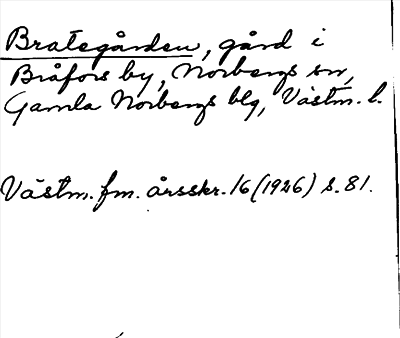 Brategården, gård i
Bråfors by, Norbergs sn,
Gamla Norbergs blg, Västm. l.
Västm. fm. årsskr. 16 (1926) s. 81.